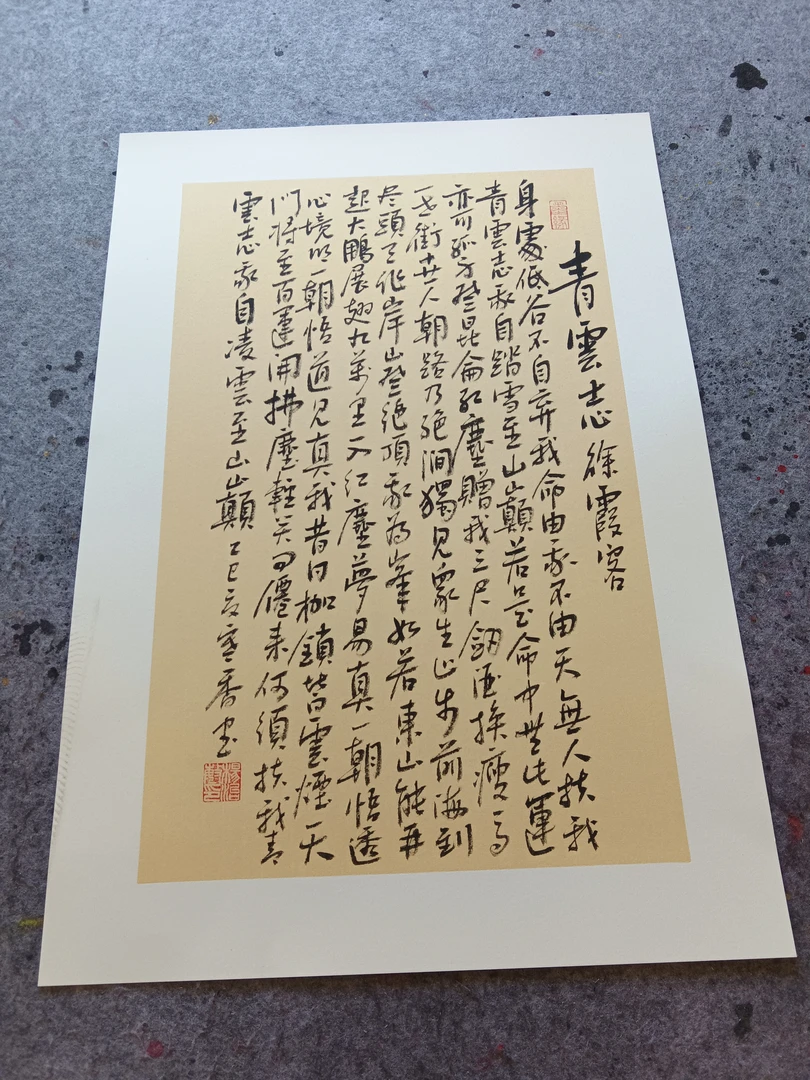 青雲志 徐霞客
身處低谷不自弃我命由我不由天無人扶我
青雲志我自踏雪至山巔若是命中無此運
亦可孤身登昆侖紅塵贈我三尺劍酒換瘦馬
一世衝世人朝路乃絕澗獨見衆生止步前海到
尽頭天作岸山登絕頂我為峯如若東山能再
起大鵬展翅九萬里一入紅塵夢易真一朝悟透
心境明一朝悟道見真我昔日枷鎖皆雲煙天
门将至百運開拂塵輕笑問僊來何須扶我青
雲志我自凌雲至山巔 乙巳夏寒香书